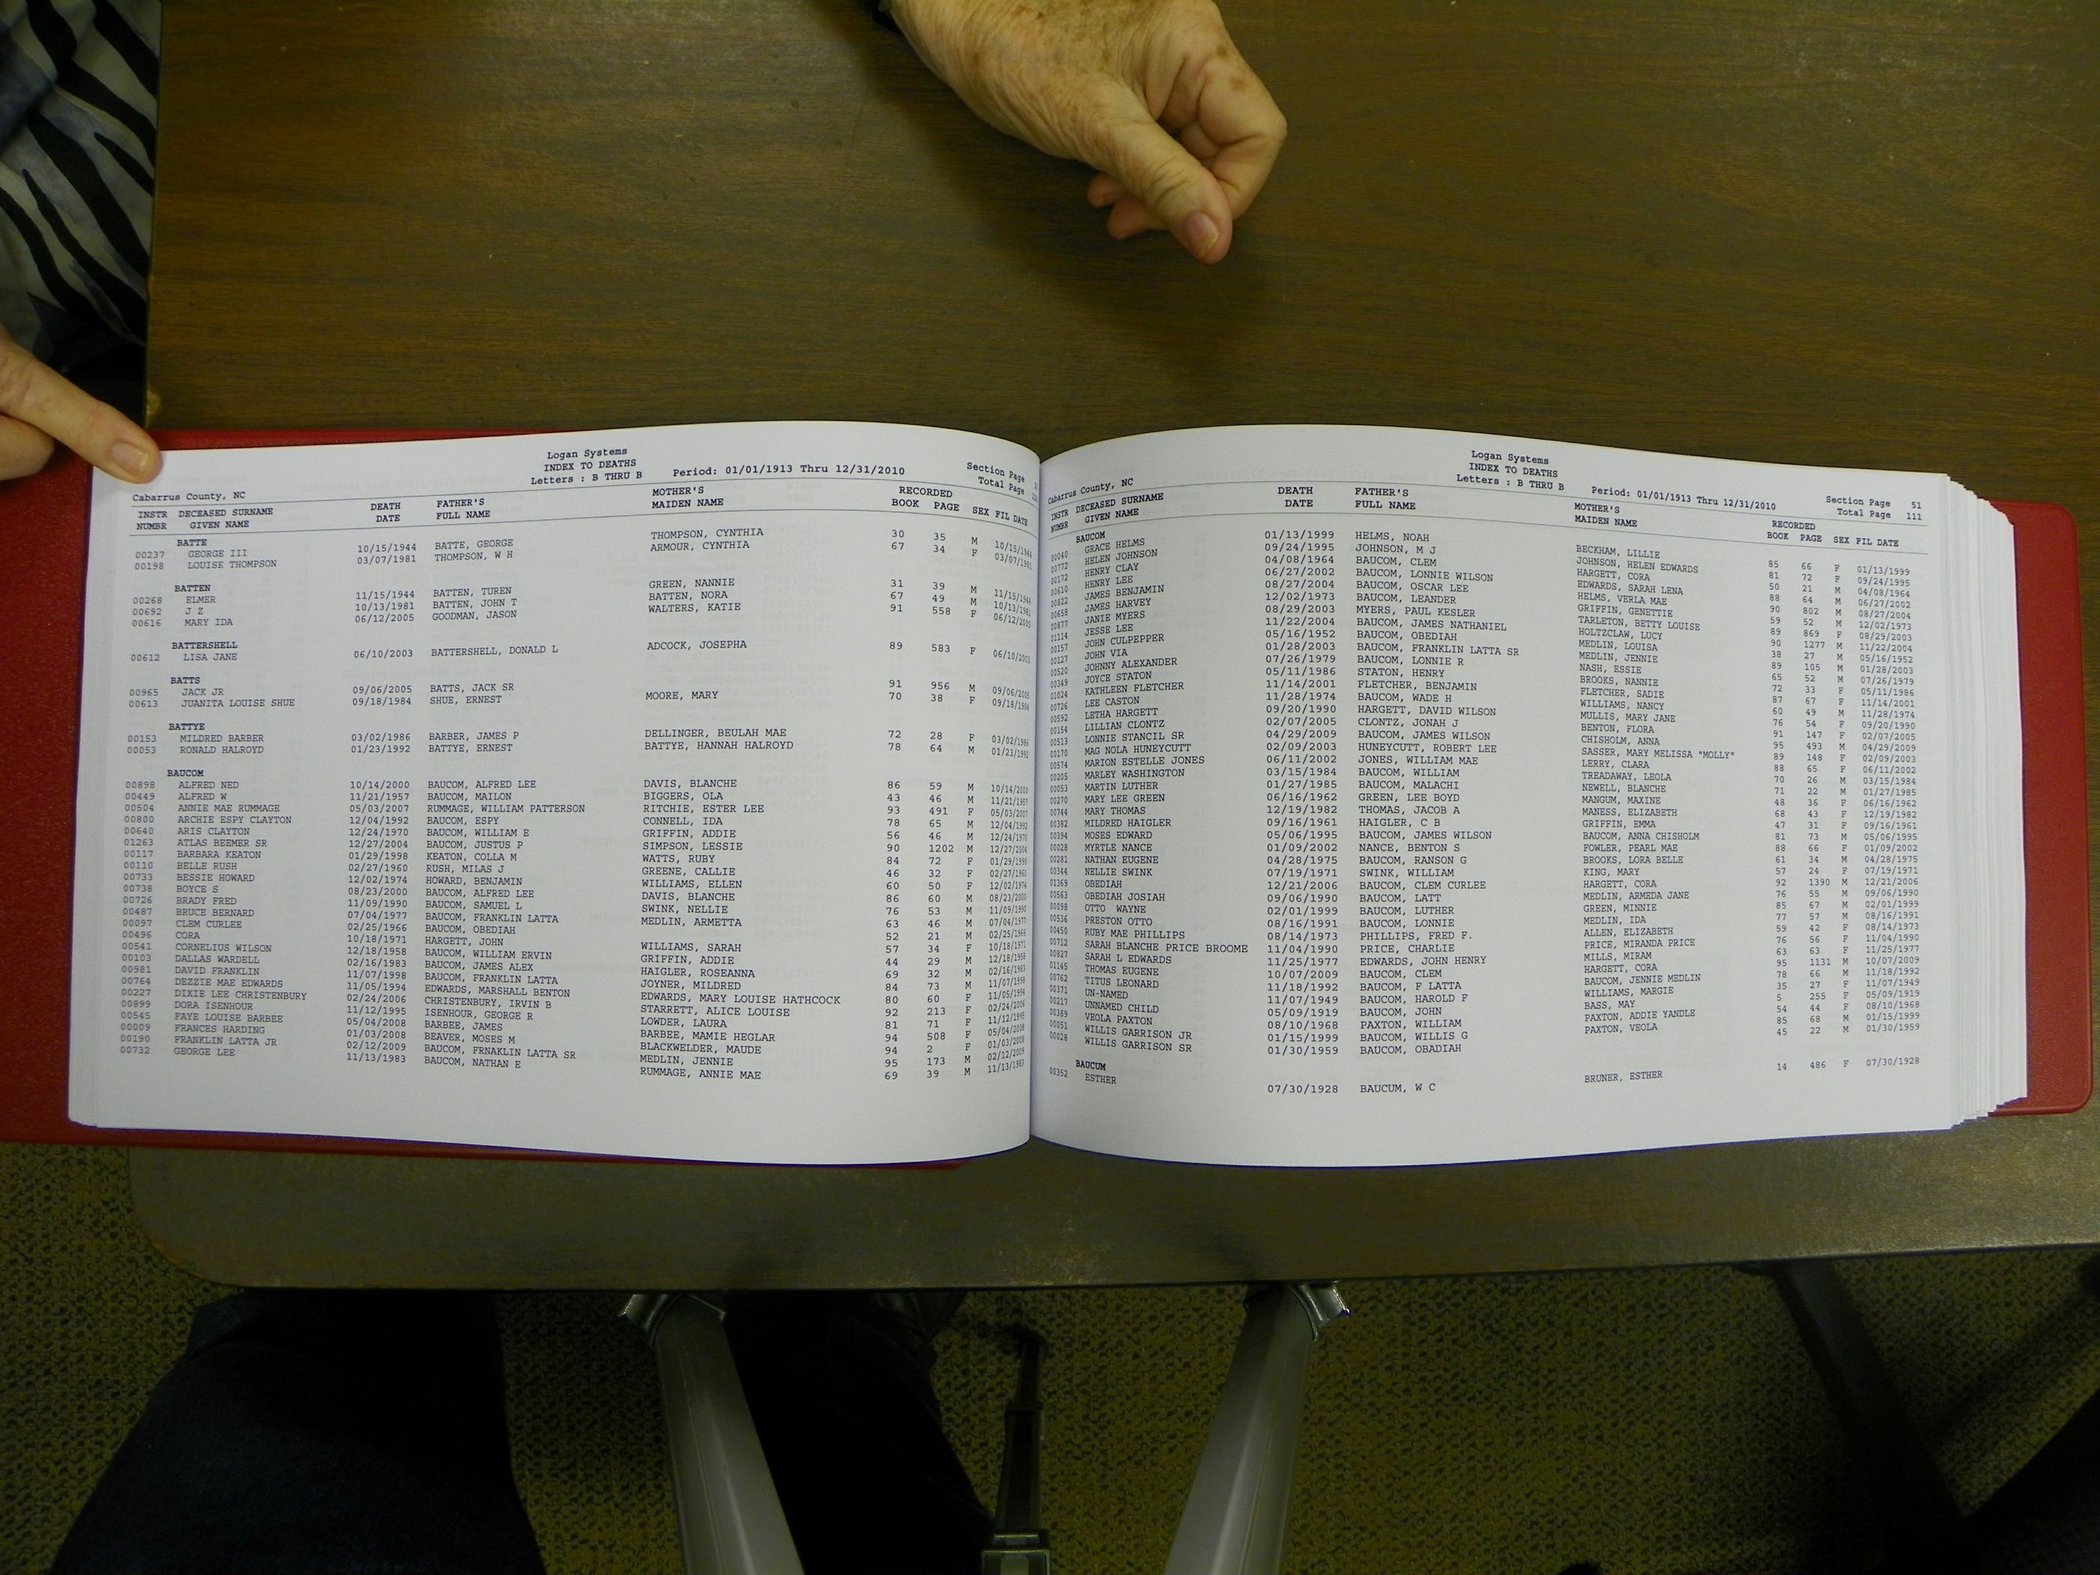 Logan Systems
INDEX TO DEATHS
Letters : B THRU B
Period: 01/01/1913 Thru 12/31/2010
Section Page
Total Page
Cabarrus County, NC
INSTR DECEASED SURNAME DEATH FATHER'S MOTHER'S RECORDED
NUMBR GIVEN NAME DATE FULL NAME MAIDEN NAME BOOK PAGE SEX FIL DATE
BATTE
00237 GEORGE III 10/15/1944 BATTE, GEORGE THOMPSON, CYNTHIA 30 35 M 10/15/1944
00198 LOUISE THOMPSON 03/07/1981 THOMPSON, W H ARMOUR, CYNTHIA 67 34 F 03/07/1981
BATTEN
00268 ELMER 11/15/1944 BATTEN, TUREN GREEN, NANNIE 31 39 M 11/15/1944
00692 J Z 10/13/1981 BATTEN, JOHN T BATTEN, NORA 67 49 M 10/13/1981
00616 MARY IDA 06/12/2005 GOODMAN, JASON WALTERS, KATIE 91 558 F 06/12/2005
BATTERSHELL
00612 LISA JANE 06/10/2003 BATTERSHELL, DONALD L ADCOCK, JOSEPHA 89 583 F 06/10/2003
BATTS
00965 JACK JR 09/06/2005 BATTS, JACK SR 91 956 M 09/06/2005
00613 JUANITA LOUISE SHUE 09/18/1984 SHUE, ERNEST MOORE, MARY 70 38 F 09/18/1984
BATTYE
00153 MILDRED BARBER 03/02/1986 BARBER, JAMES P DELLINGER, BEULAH MAE 72 28 F 03/02/1986
00053 RONALD HALROYD 01/23/1992 BATTYE, ERNEST BATTYE, HANNAH HALROYD 78 64 M 01/23/1992
BAUCOM
00898 ALFRED NED 10/14/2000 BAUCOM, ALFRED LEE DAVIS, BLANCHE 86 59 M 10/14/2000
00449 ALFRED W 11/21/1957 BAUCOM, MAILON BIGGERS, OLA 43 46 M 11/21/1957
00504 ANNIE MAE RUMMAGE 05/03/2007 RUMMAGE, WILLIAM PATTERSON RITCHIE, ESTER LEE 93 491 F 05/03/2007
00800 ARCHIE ESPY CLAYTON 12/04/1992 BAUCOM, ESPY CONNELL, IDA 78 65 M 12/04/1992
00640 ARIS CLAYTON 12/24/1970 BAUCOM, WILLIAM E GRIFFIN, ADDIE 56 46 M 12/24/1970
01263 ATLAS BEEMER SR 12/27/2004 BAUCOM, JUSTUS P SIMPSON, LESSIE 90 1202 M 12/27/2004
00117 BARBARA KEATON 01/29/1998 KEATON, COLLA M WATTS, RUBY 84 72 F 01/29/1998
00110 BELLE RUSH 02/27/1960 RUSH, MILAS J GREENE, CALLIE 46 32 F 02/27/1960
00733 BESSIE HOWARD 12/02/1974 HOWARD, BENJAMIN WILLIAMS, ELLEN 60 50 F 12/02/1974
00738 BOYCE S 08/23/2000 BAUCOM, ALFRED LEE DAVIS, BLANCHE 86 60 M 08/23/2000
00726 BRADY FRED 11/09/1990 BAUCOM, SAMUEL L SWINK, NELLIE 76 53 M 11/09/1990
00487 BRUCE BERNARD 07/04/1977 BAUCOM, FRANKLIN LATTA MEDLIN, ARMETTA 63 46 M 07/04/1977
00097 CLEM CURLEE 02/25/1966 BAUCOM, OBEDIAH 52 21 M 02/25/1966
00496 CORA 10/18/1971 HARGETT, JOHN WILLIAMS, SARAH 57 34 F 10/18/1971
00541 CORNELIUS WILSON 12/18/1958 BAUCOM, WILLIAM ERVIN GRIFFIN, ADDIE 44 29 M 12/18/1958
00103 DALLAS WARDELL 02/16/1983 BAUCOM, JAMES ALEX HAIGLER, ROSEANNA 69 32 M 02/16/1983
00981 DAVID FRANKLIN 11/07/1998 BAUCOM, FRANKLIN LATTA JOYNER, MILDRED 84 73 M 11/07/1998
00764 DEZZIE MAE EDWARDS 11/05/1994 EDWARDS, MARSHALL BENTON EDWARDS, MARY LOUISE HATHCOCK 80 60 F 11/05/1994
00227 DIXIE LEE CHRISTENBURY 02/24/2006 CHRISTENBURY, IRVIN B STARRETT, ALICE LOUISE 92 213 F 02/24/2006
00899 DORA ISENHOUR 11/12/1995 ISENHOUR, GEORGE R LOWDER, LAURA 81 71 F 11/12/1995
00545 FAYE LOUISE BARBEE 05/04/2008 BARBEE, JAMES BARBEE, MAMIE HEGLAR 94 508 F 05/04/2008
00009 FRANCES HARDING 01/03/2008 BEAVER, MOSES M BLACKWELDER, MAUDE 94 2 F 01/03/2008
00190 FRANKLIN LATTA JR 02/12/2009 BAUCOM, FRNAKLIN LATTA SR MEDLIN, JENNIE 95 173 M 02/12/2009
00732 GEORGE LEE 11/13/1983 BAUCOM, NATHAN E RUMMAGE, ANNIE MAE 69 39 M 11/13/1983
Logan Systems
INDEX TO DEATHS
Letters : B THRU B
Period: 01/01/1913 Thru 12/31/2010
Section Page 51
Total Page 111
Cabarrus County, NC
INSTR DECEASED SURNAME DEATH FATHER'S MOTHER'S RECORDED
NUMBR GIVEN NAME DATE FULL NAME MAIDEN NAME BOOK PAGE SEX FIL DATE
BAUCOM
00040 GRACE HELMS 01/13/1999 HELMS, NOAH BECKHAM, LILLIE 85 66 F 01/13/1999
00772 HELEN JOHNSON 09/24/1995 JOHNSON, M J JOHNSON, HELEN EDWARDS 81 72 F 09/24/1995
00172 HENRY CLAY 04/08/1964 BAUCOM, CLEM HARGETT, CORA 50 21 M 04/08/1964
00610 HENRY LEE 06/27/2002 BAUCOM, LONNIE WILSON EDWARDS, SARAH LENA 88 64 M 06/27/2002
00822 JAMES BENJAMIN 08/27/2004 BAUCOM, OSCAR LEE HELMS, VERLA MAE 90 802 M 08/27/2004
00658 JAMES HARVEY 12/02/1973 BAUCOM, LEANDER GRIFFIN, GENETTIE 59 52 M 12/02/1973
00877 JANIE MYERS 08/29/2003 MYERS, PAUL KESLER TARLETON, BETTY LOUISE 89 869 F 08/29/2003
01114 JESSE LEE 11/22/2004 BAUCOM, JAMES NATHANIEL HOLTZCLAW, LUCY 90 1277 M 11/22/2004
00157 JOHN CULPEPPER 05/16/1952 BAUCOM, OBEDIAH MEDLIN, LOUISA 38 27 M 05/16/1952
00127 JOHN VIA 01/28/2003 BAUCOM, FRANKLIN LATTA SR MEDLIN, JENNIE 89 105 M 01/28/2003
00520 JOHNNY ALEXANDER 07/26/1979 BAUCOM, LONNIE R NASH, ESSIE 65 52 M 07/26/1979
00349 JOYCE STATON 05/11/1986 STATON, HENRY BROOKS, NANNIE 72 33 F 05/11/1986
01024 KATHLEEN FLETCHER 11/14/2001 FLETCHER, BENJAMIN FLETCHER, SADIE 87 67 F 11/14/2001
00726 LEE CASTON 11/28/1974 BAUCOM, WADE H WILLIAMS, NANCY 60 49 M 11/28/1974
00592 LETHA HARGETT 09/20/1990 HARGETT, DAVID WILSON MULLIS, MARY JANE 76 54 F 09/20/1990
00154 LILLIAN CLONTZ 02/07/2005 CLONTZ, JONAH J BENTON, FLORA 91 147 F 02/07/2005
00513 LONNIE STANCIL SR 04/29/2009 BAUCOM, JAMES WILSON CHISHOLM, ANNA 95 493 M 04/29/2009
00170 MAG NOLA HUNEYCUTT 02/09/2003 HUNEYCUTT, ROBERT LEE SASSER, MARY MELISSA "MOLLY" 89 148 F 02/09/2003
00574 MARION ESTELLE JONES 06/11/2002 JONES, WILLIAM MAE LERRY, CLARA 88 65 F 06/11/2002
00205 MARLEY WASHINGTON 03/15/1984 BAUCOM, WILLIAM TREADAWAY, LEOLA 70 26 M 03/15/1984
00053 MARTIN LUTHER 01/27/1985 BAUCOM, MALACHI NEWELL, BLANCHE 71 22 M 01/27/1985
00270 MARY LEE GREEN 06/16/1962 GREEN, LEE BOYD MANGUM, MAXINE 48 36 F 06/16/1962
00744 MARY THOMAS 12/19/1982 THOMAS, JACOB A MANESS, ELIZABETH 68 43 F 12/19/1982
00382 MILDRED HAIGLER 09/16/1961 HAIGLER, C B GRIFFIN, EMMA 47 31 F 09/16/1961
00394 MOSES EDWARD 05/06/1995 BAUCOM, JAMES WILSON BAUCOM, ANNA CHISHOLM 81 73 M 05/06/1995
00028 MYRTLE NANCE 01/09/2002 NANCE, BENTON S FOWLER, PEARL MAE 88 66 F 01/09/2002
00281 NATHAN EUGENE 04/28/1975 BAUCOM, RANSON G BROOKS, LORA BELLE 61 34 M 04/28/1975
00344 NELLIE SWINK 07/19/1971 SWINK, WILLIAM KING, MARY 57 24 F 07/19/1971
01369 OBEDIAH 12/21/2006 BAUCOM, CLEM CURLEE HARGETT, CORA 92 1390 M 12/21/2006
00563 OBEDIAH JOSIAH 09/06/1990 BAUCOM, LATT MEDLIN, ARMEDA JANE 76 55 M 09/06/1990
00098 OTTO WAYNE 02/01/1999 BAUCOM, LUTHER GREEN, MINNIE 85 67 M 02/01/1999
00536 PRESTON OTTO 08/16/1991 BAUCOM, LONNIE MEDLIN, IDA 77 57 M 08/16/1991
00450 RUBY MAE PHILLIPS 08/14/1973 PHILLIPS, FRED F. ALLEN, ELIZABETH 59 42 F 08/14/1973
00712 SARAH BLANCHE PRICE BROOME 11/04/1990 PRICE, CHARLIE PRICE, MIRANDA PRICE 76 56 F 11/04/1990
00827 SARAH L EDWARDS 11/25/1977 EDWARDS, JOHN HENRY MILLS, MIRAM 63 63 F 11/25/1977
01145 THOMAS EUGENE 10/07/2009 BAUCOM, CLEM HARGETT, CORA 95 1131 M 10/07/2009
00762 TITUS LEONARD 11/18/1992 BAUCOM, F LATTA BAUCOM, JENNIE MEDLIN 78 66 M 11/18/1992
00371 UN-NAMED 11/07/1949 BAUCOM, HAROLD F WILLIAMS, MARGIE 35 27 F 11/07/1949
00217 UNNAMED CHILD 05/09/1919 BAUCOM, JOHN BASS, MAY 5 255 F 05/09/1919
00389 VEOLA PAXTON 08/10/1968 PAXTON, WILLIAM PAXTON, ADDIE YANDLE 54 44 F 08/10/1968
00051 WILLIS GARRISON JR 01/15/1999 BAUCOM, WILLIS G PAXTON, VEOLA 85 68 M 01/15/1999
00028 WILLIS GARRISON SR 01/30/1959 BAUCOM, OBADIAH 45 22 M 01/30/1959
BAUCUM
00352 ESTHER 07/30/1928 BAUCUM, W C BRUNER, ESTHER 14 486 F 07/30/1928